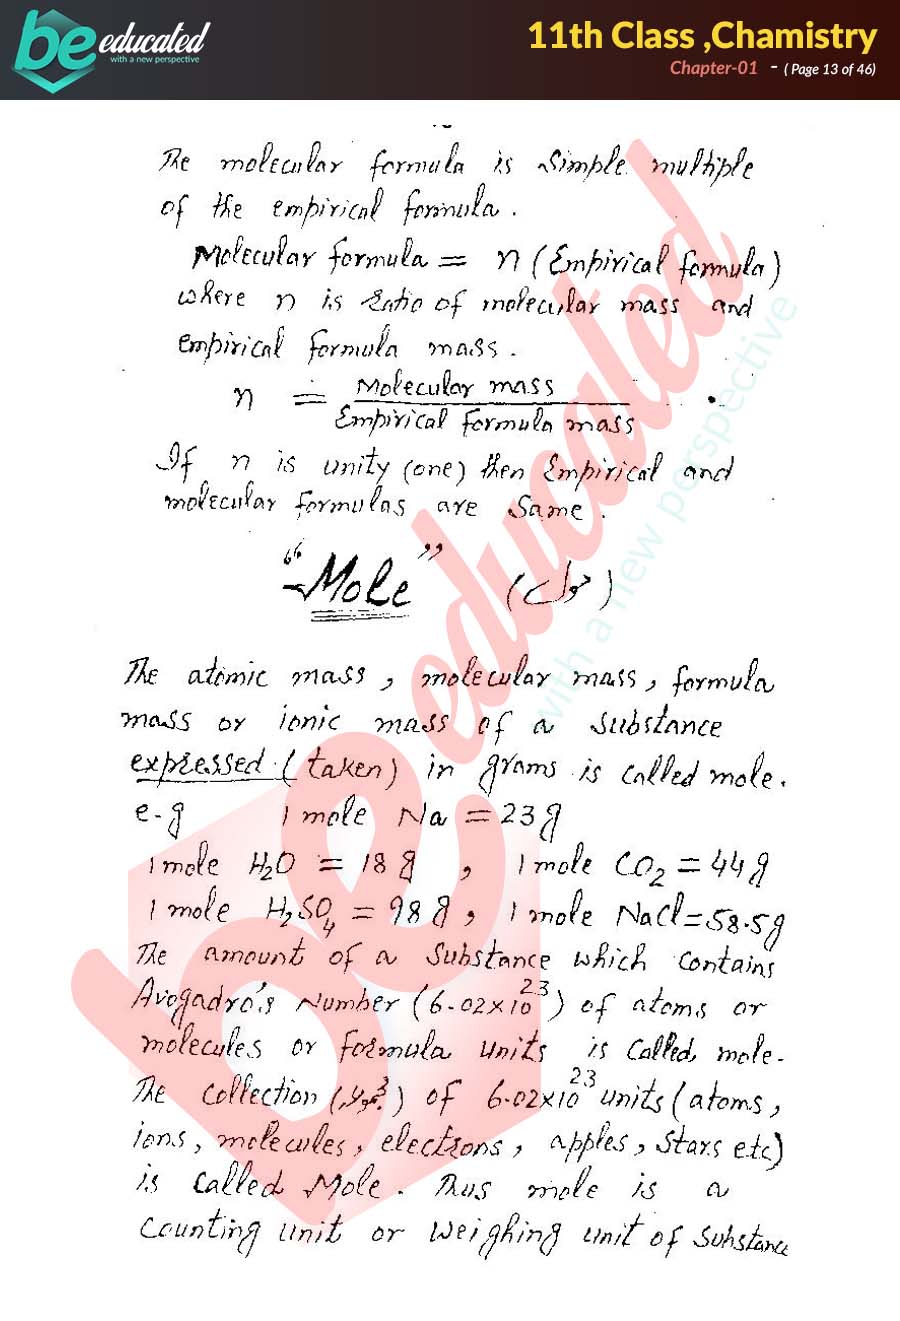 be educated
with a new perspective
11th Class ,Chamistry
Chapter-01 - ( Page 13 of 46)
The molecular formula is simple multiple
of the empirical formula.
Molecular formula = n (Empirical formula)
where n is ratio of molecular mass and
empirical formula mass.
n = Molecular mass
Empirical formula mass
If n is unity (one) then Empirical and
molecular formulas are same.
"Mole" (مول)
The atomic mass, molecular mass, formula
mass or ionic mass of a substance
expressed (taken) in grams is called mole.
e-g 1 mole Na = 23 g
1 mole H₂O = 18 g , 1 mole CO₂ = 44 g
1 mole H₂SO₄ = 98 g , 1 mole NaCl = 58.5g
The amount of a substance which contains
Avogadro's Number (6.02×10²³) of atoms or
molecules or formula units is called mole.
The collection ( ) of 6.02×10²³ units (atoms,
ions, molecules, electrons, apples, stars etc)
is called Mole. Thus mole is a
counting unit or weighing unit of substance
be educated
with a new perspective